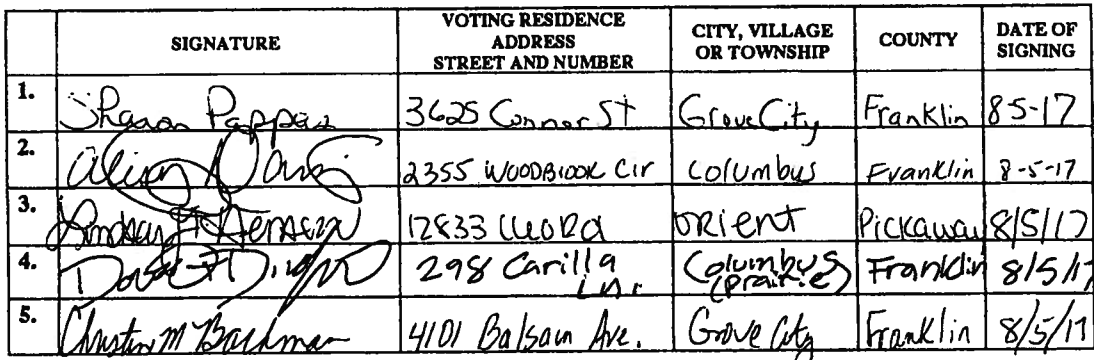 SIGNATURE VOTING RESIDENCE ADDRESS STREET AND NUMBER CITY, VILLAGE OR TOWNSHIP COUNTY DATE OF SIGNING
1. Sharon Pappas 3625 Connor St Grove City Franklin 8-5-17
2. Davis 2355 WOODBROOK Cir Columbus Franklin 8-5-17
3. Lindsay 12833 ORIENT Pickaway 8/5/17
4. 298 Carilla Ln. Columbus (prairie) Franklin 8/5/17
5. Christin M Bachman 4101 Balsam Ave. Grove City Franklin 8/5/17